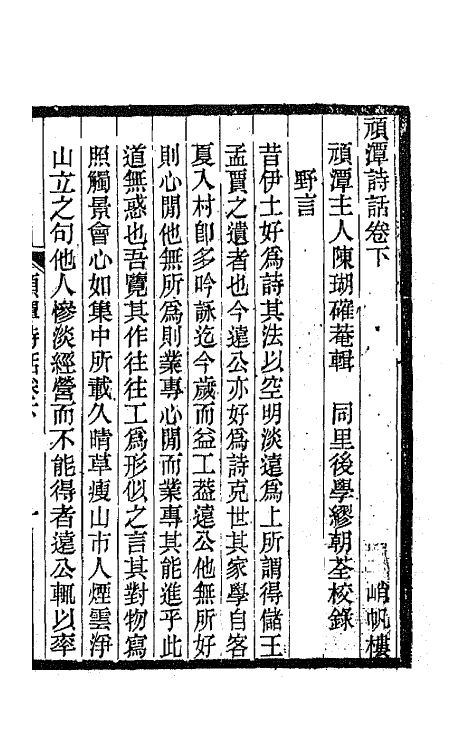 頑潭詩話卷下 峭帆樓
頑潭主人陳瑚確菴輯 同里後學繆朝荃校錄
野言
昔伊士好爲詩其法以空明淡遠爲上所謂得儲王
孟賈之遺者也今遠公亦好爲詩克世其家學自客
夏入村卽多吟詠迄今歲而益工蓋遠公他無所好
則心閒他無所爲則業專心閒而業專其能進乎此
道無惑也吾覽其作往往工爲形似之言其對物寫
照觸景會心如集中所載久晴草瘦山市人煙雲淨
山立之句他人慘淡經營而不能得者遠公輒以率
頑潭詩話卷下 一